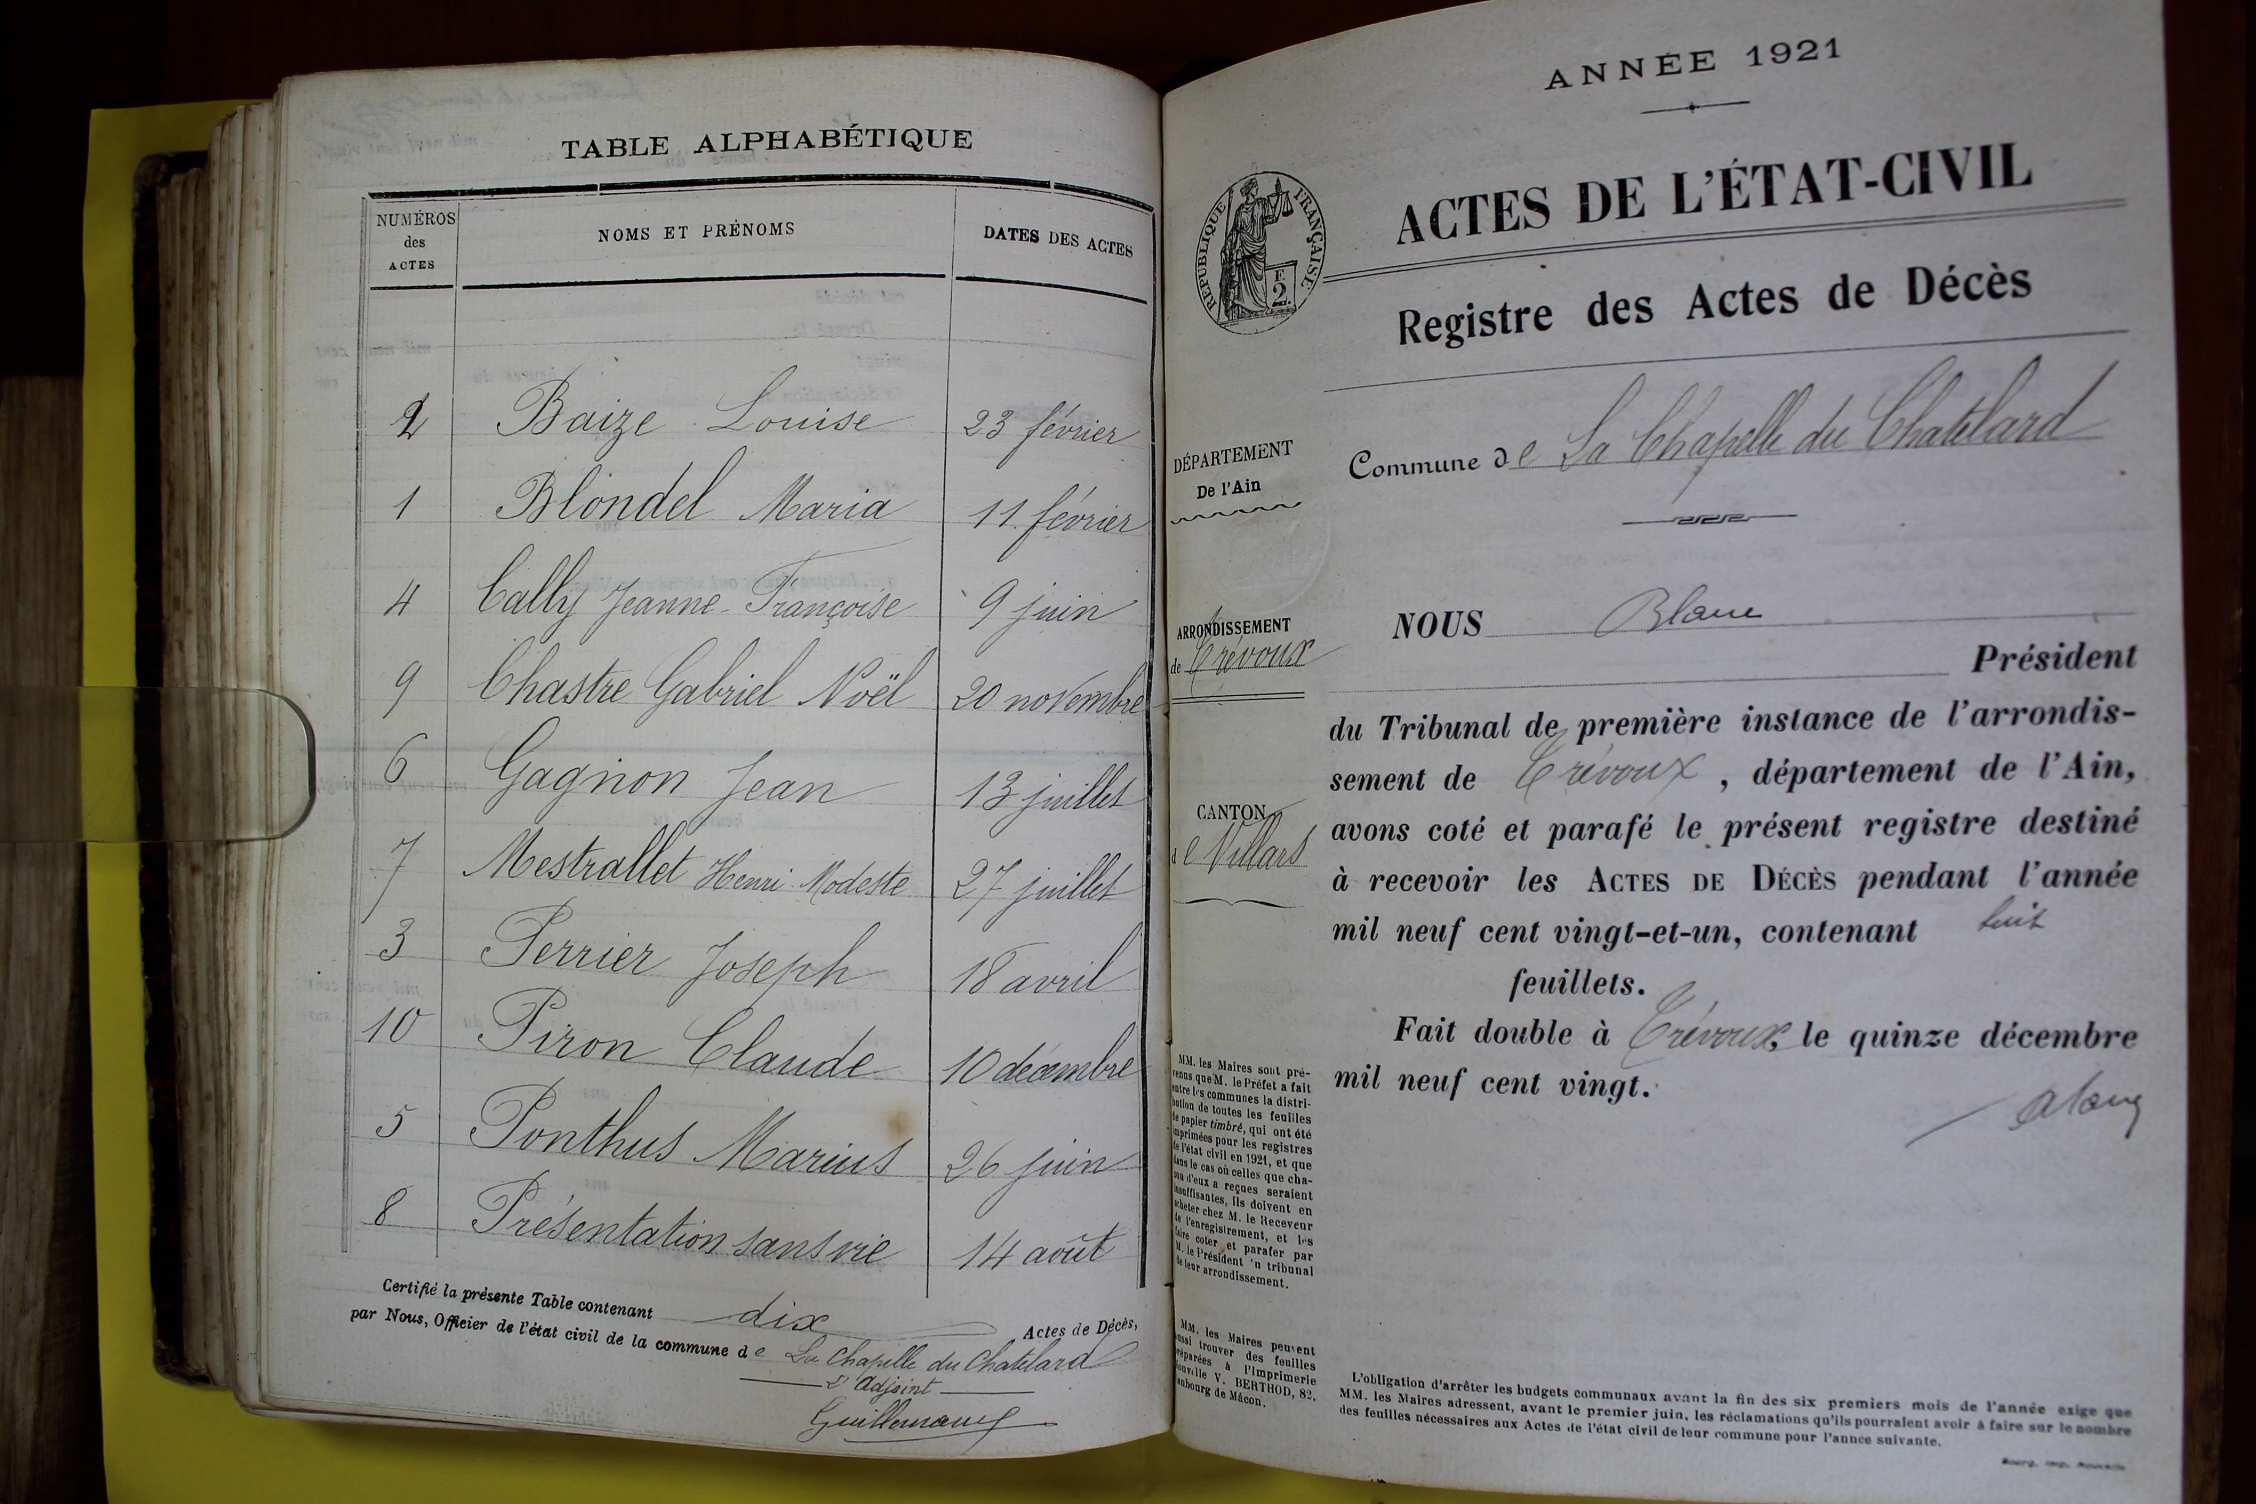 TABLE ALPHABÉTIQUE
NUMÉROS
des
ACTES
NOMS ET PRÉNOMS
DATES DES ACTES
2 Baize Louise 23 février
1 Blondel Maria 11 février
4 Cally Jeanne-Françoise 9 juin
9 Chastre Gabriel Noël 20 novembre
6 Gagnon Jean 13 juillet
7 Mestrallet Henri Modeste 27 juillet
3 Perrier Joseph 18 avril
10 Piron Claude 10 décembre
5 Ponthus Marius 26 juin
8 Présentation sans vie 14 août
Certifié la présente Table contenant dix Actes de Décès,
par Nous, Officier de l'état civil de la commune de La Chapelle du Chatelard
L'Adjoint
ANNÉE 1921
RÉPUBLIQUE FRANÇAISE
2
ACTES DE L'ÉTAT-CIVIL
Registre des Actes de Décès
Commune de La Chapelle du Chatelard
DÉPARTEMENT
De l'Ain
ARRONDISSEMENT
de Trévoux
CANTON
de Villars
MM. les Maires sont pré-
venus que M. le Préfet a fait
entre les communes la distri-
bution de toutes les feuilles
de papier timbré, qui ont été
imprimées pour les registres
de l'état civil en 1921, et que
dans le cas où celles que cha-
cun d'eux a reçues seraient
insuffisantes, ils doivent en
acheter chez M. le Receveur
de l'enregistrement, et les
faire coter et parafer par
M. le Président du tribunal
de leur arrondissement.
MM. les Maires peuvent
aussi trouver des feuilles
préparées à l'Imprimerie
Nouvelle V. BERTHOD, 82,
faubourg de Mâcon.
NOUS Blanc
Président
du Tribunal de première instance de l'arrondis-
sement de Trévoux, département de l'Ain,
avons coté et parafé le présent registre destiné
à recevoir les ACTES DE DÉCÈS pendant l'année
mil neuf cent vingt-et-un, contenant huit
feuillets.
Fait double à Trévoux, le quinze décembre
mil neuf cent vingt.
L'obligation d'arrêter les budgets communaux avant la fin des six premiers mois de l'année exige que
MM. les Maires adressent, avant le premier juin, les réclamations qu'ils pourraient avoir à faire sur le nombre
des feuilles nécessaires aux Actes de l'état civil de leur commune pour l'année suivante.
Bourg, Imp. Nouvelle